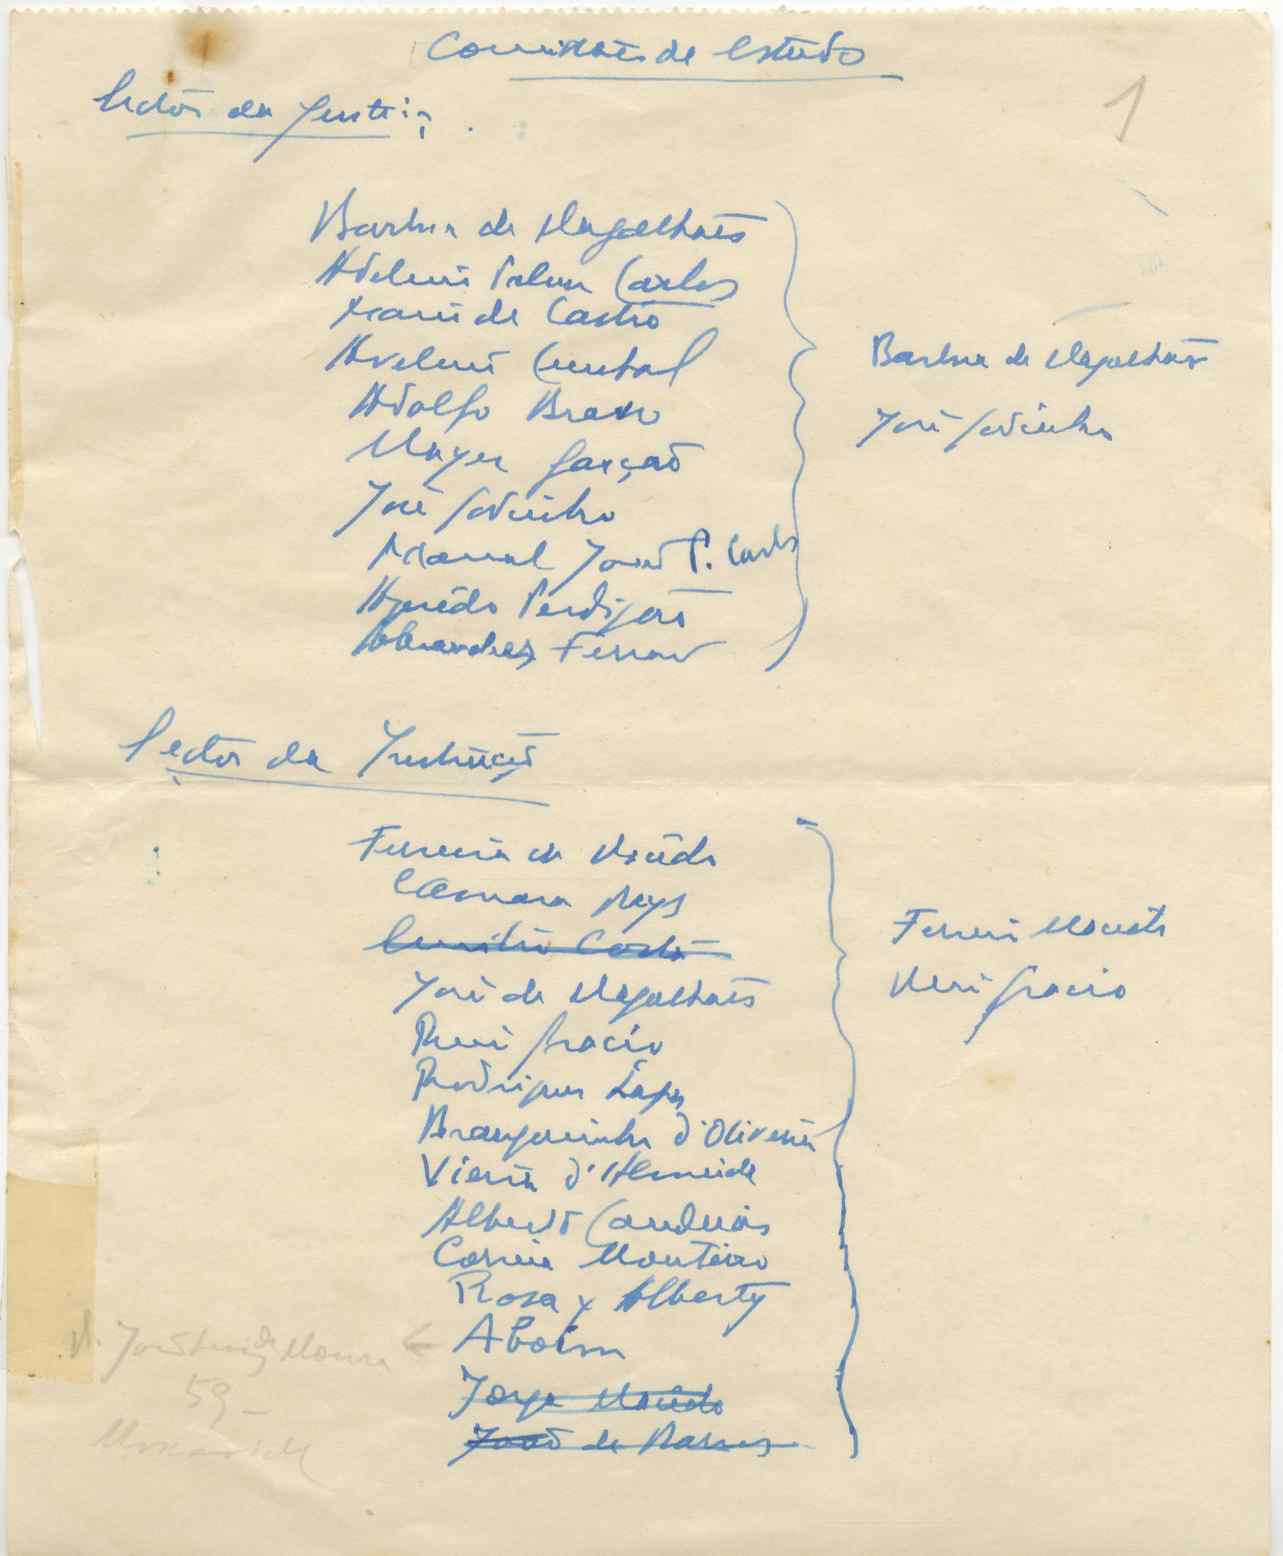 Comissões de estudo
1
Sector da Justiça
Barbosa de Magalhães
Adelino Palma Carlos
de Castro
Avelino Cunhal
Adolfo Bravo
Mayer Garção
José Godinho
Manuel João P. Carlos
Azeredo Perdigão
Abranches Ferrão
Barbosa de Magalhães
José Godinho
Sector da Instrução
Ferreira de Macedo
Câmara Reys
Emílio Costa
José de Magalhães
Rui Grácio
Rodrigues Lapa
Branquinho d'Oliveira
Vieira d'Almeida
Alberto Candeias
Correia Monteiro
Rosa y Alberty
Aboim
Jorge Macedo
João de Barros
Ferreira Macedo
Rui Grácio
59